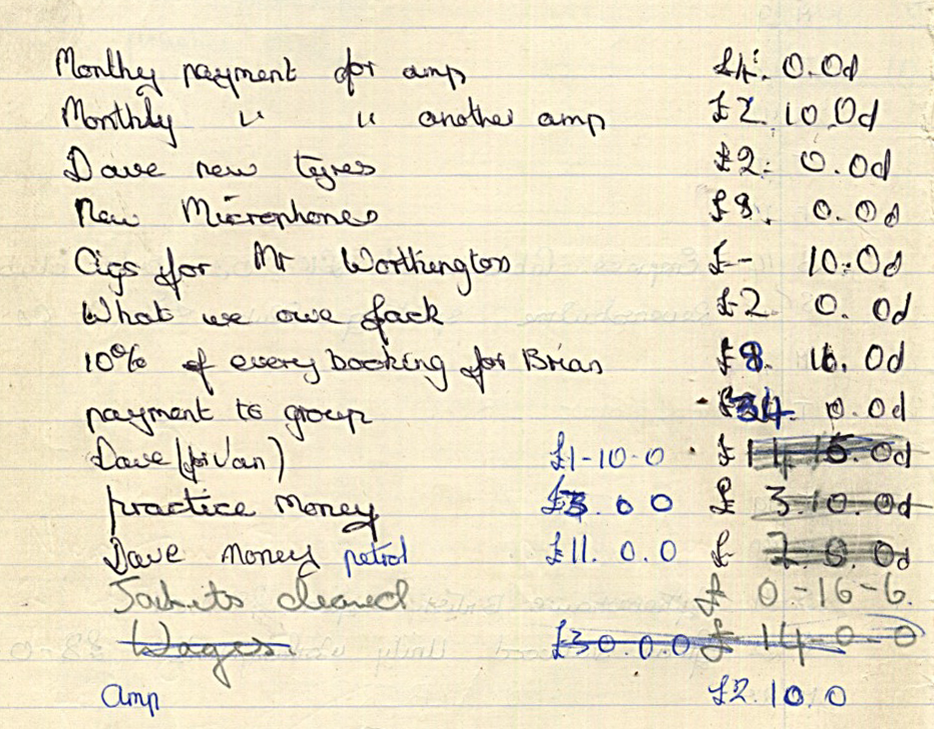 Monthy payment for amp £4. 0.0d
Monthly " " another amp £2. 10.0d
Dave new tyres £2. 0.0d
New Microphones £8. 0.0d
Cigs for Mr Worthington £- 10.0d
What we owe Jack £2. 0. 0d
10% of every booking for Brian £8. 16. 0d
payment to group £34. 0.0d
Dave (for Van) £1-10-0 £ 0d
practice Money £3. 0 0 £ 3.10.0d
Dave Money petrol £11. 0.0 £ 0d
Jackets cleaned £ 0-16-6.
Wages £30.0.0 £ 14-0-0
amp £2.10.0